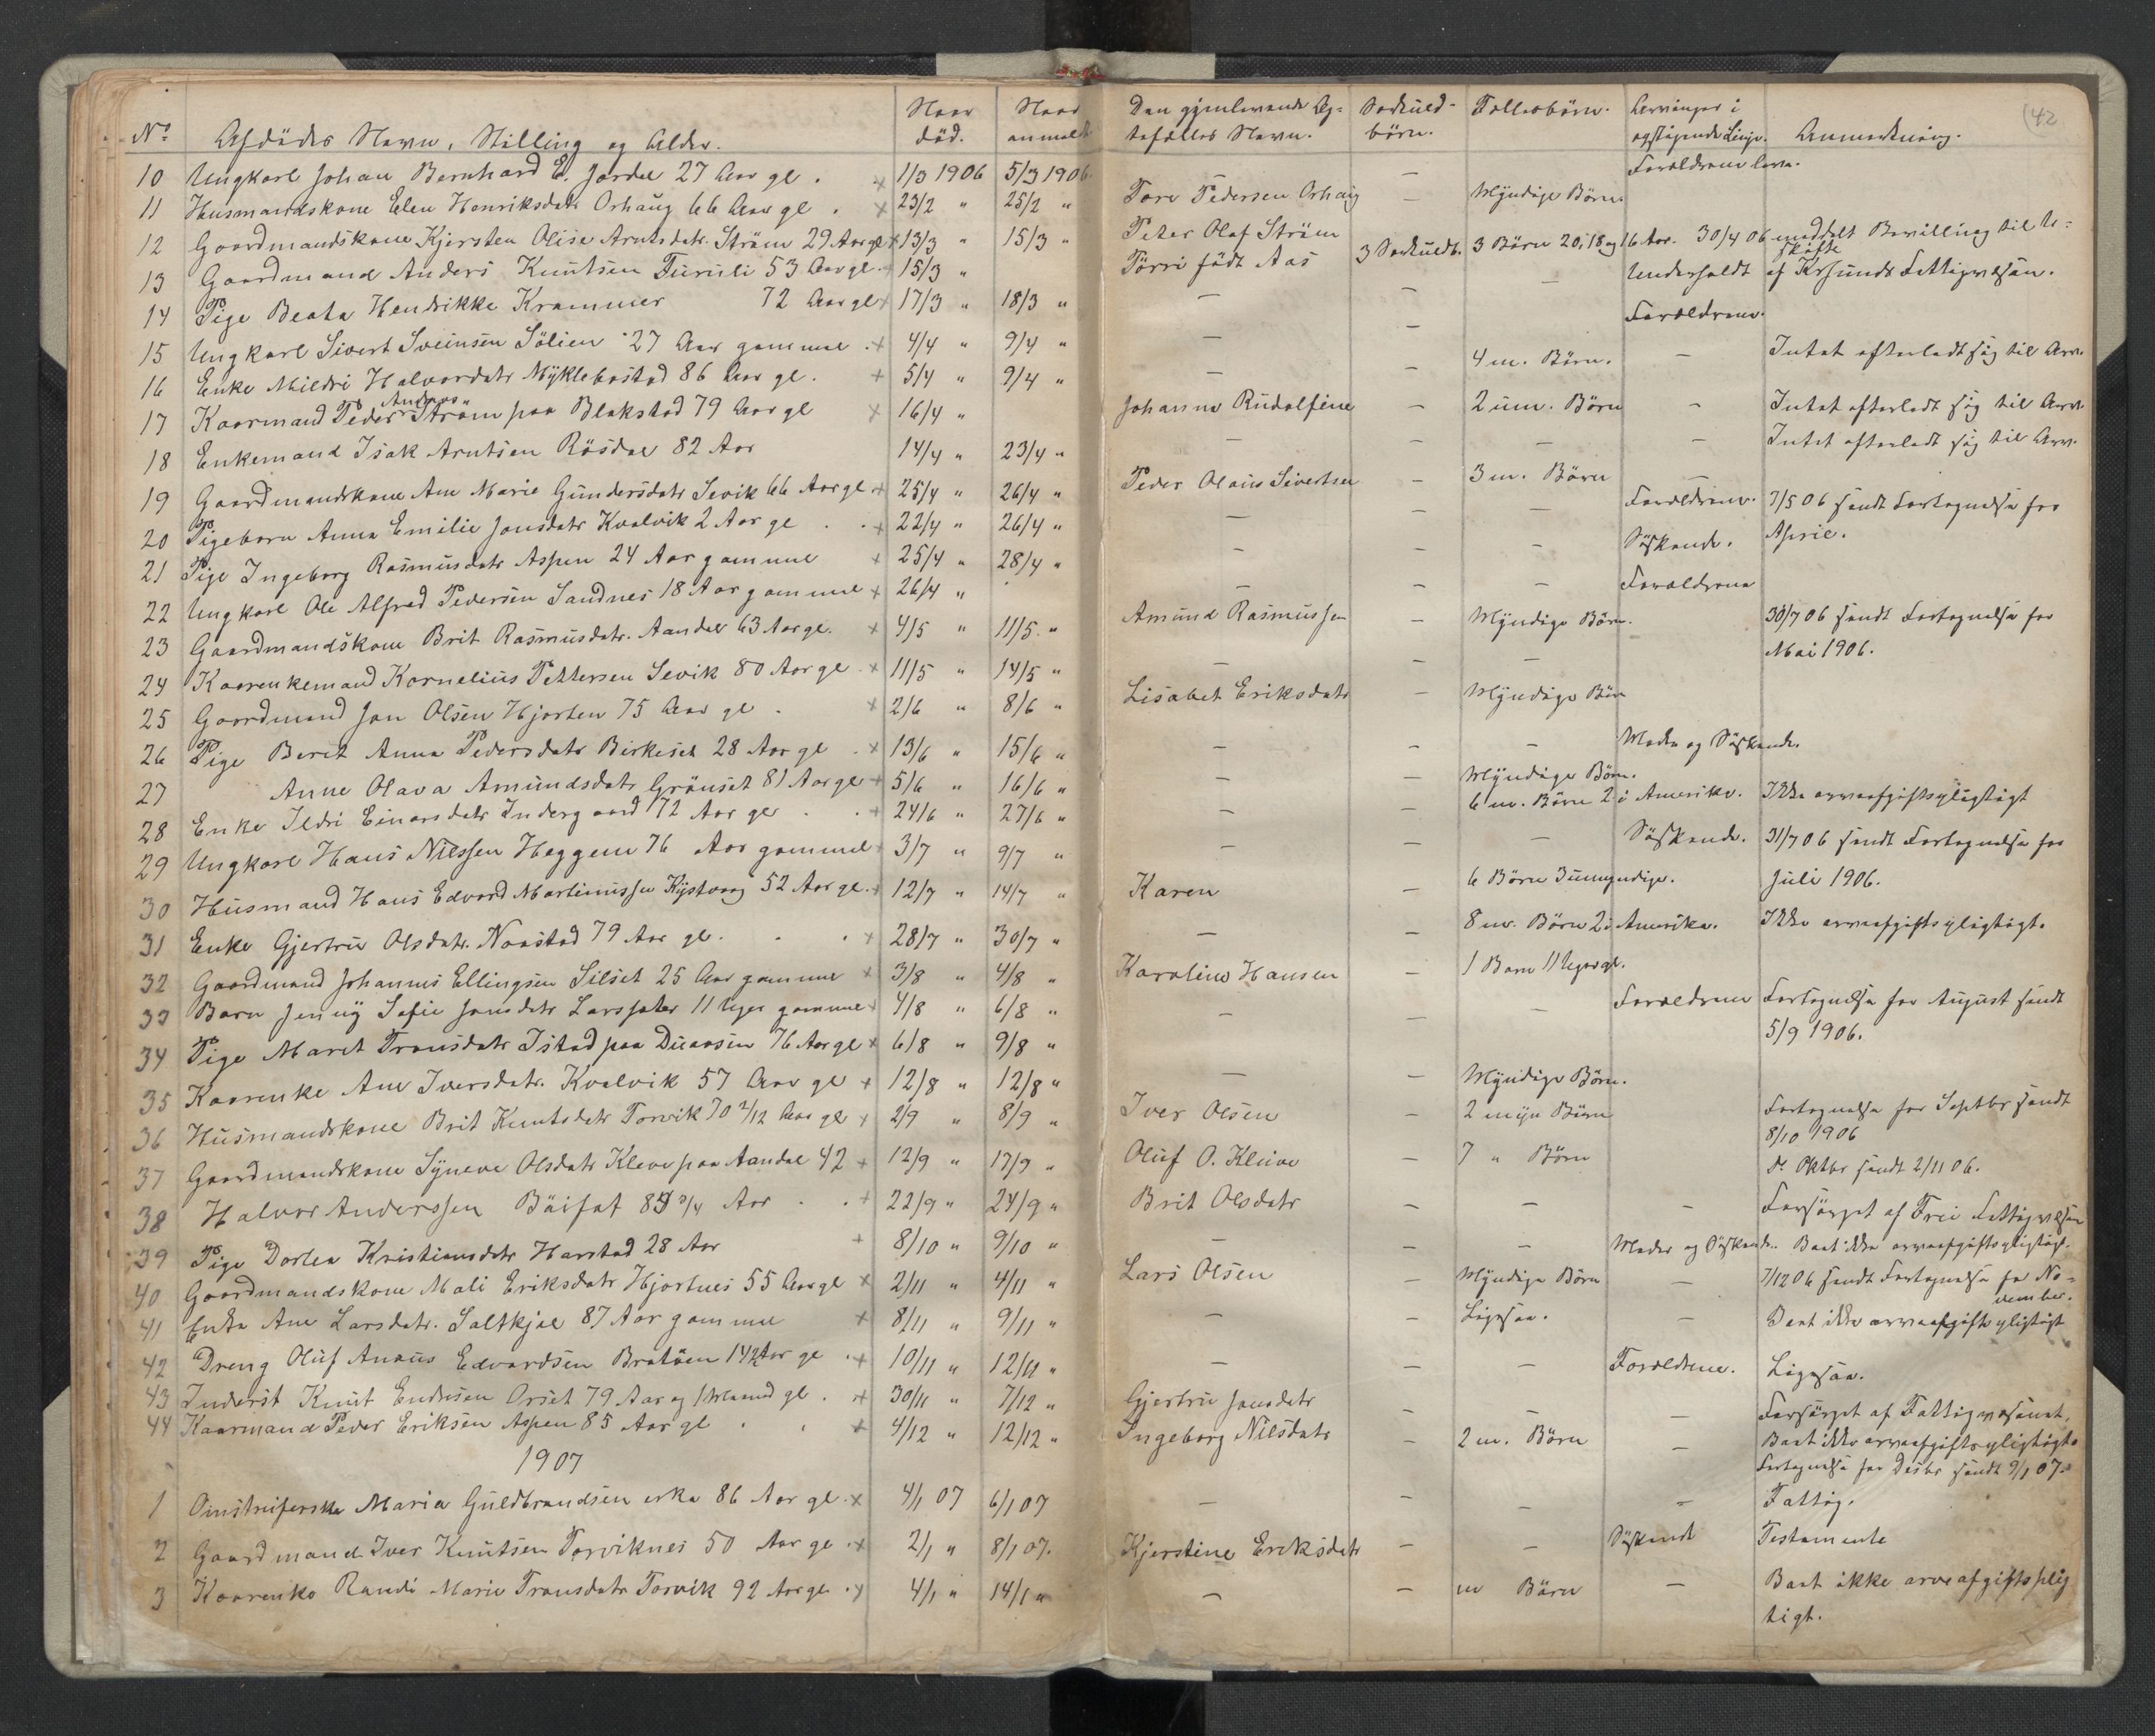 42
No Afdödes Navn, Stilling og Alder. Naar död. Naar anmeldt Den gjenlevende Æg- tefælles Navn. Særkuld- börn. Fællesbörn. Arvinger i opstigende Linje. Anmerkning.
10 Ungkarl Johan Bernhard E. Jordal 27 Aar gl. x 1/3 1906 5/3 1906 — Forældrene leve.
11 Husmandskone Elen Henriksdatr Orhaug 66 Aar gl. x 23/2 " 25/2 " Tore Pedersen Orhaug — Myndige Börn.
12 Gaardmandskone Kjersten Olise Arntsdatr. Ström 29 Aar gl x 13/3 " 15/3 " Peter Olaf Ström
13 Gaardmand Anders Knutsen Furuli 53 Aar gl. x 15/3 " Törri födt Aas 3 Særkuldb. 3 Börn 20, 18 og 16 Aar. 30/4 06 meddelt Bevilling til U- skifte
14 Pige Beata Hendrikke Krammer 72 Aar gl x 17/3 " 18/3 " — — — Underholdt af Krsunds Fattigvæsen.
15 Ungkarl Sivert Sveinsen Sölien 27 Aar gammel x 4/4 " 9/4 " — — Forældrene.
16 Enke Mildri Halvordatr Myklebostad 86 Aar gl. + 5/4 " 9/4 " — — 4 m. Börn. — Intet efterladt sig til Arv.
17 Kaarmand Peder Andreas Ström paa Blakstad 79 Aar gl x 16/4 " Johanne Rudolfine — 2 um. Börn — Intet efterladt sig til Arv.
18 Enkemand Isak Arntsen Rösdal 82 Aar 14/4 " 23/4 " — — — — Intet efterladt sig til Arv.
19 Gaardmandskone Ane Marie Gundersdatr Sevik 66 Aar gl x 25/4 " 26/4 " Peder Olaus Sivertsen — 3 m. Börn —
20 Pigebarn Anna Emilie Jonsdatr Kvalvik 2 Aar gl . . x 22/4 " 26/4 " — — — Forældrene. 7/5 06 sendt Fortegnelse for
21 Pige Ingeborg Rasmusdatr Aspen 24 Aar gammel x 25/4 " 28/4 " — — — Söskende. April.
22 Ungkarl Ole Alfred Pedersen Sandnes 18 Aar gammel x 26/4 " — — — Forældrene
23 Gaardmandskone Brit Rasmusdatr. Aandal 63 Aar gl. x 4/5 " 11/5 " Amund Rasmussen — Myndige Börn. 30/7 06 sendt Fortegnelse for
24 Kaarenkemand Kornelius Pettersen Sevik 80 Aar gl. x 11/5 " 14/5 " — — — Mai 1906.
25 Gaardmand Jon Olsen Hjorten 75 Aar gl . x 2/6 " 8/6 " Lisabet Eriksdatr — Myndige Börn
26 Pige Beret Anna Pedersdatr Birkeset 28 Aar gl . x 13/6 " 15/6 " — — — Moder og Söskende.
27 Anne Olava Amundsdatr Grönset 81 Aar gl + 5/6 " 16/6 " — — Myndige Börn.
28 Enke Ildri Einarsdatr Indergaard 72 Aar gl . . + 24/6 " 27/6 " — — 6 m. Börn 2 i Amerika. Ikke arveafgiftspligtigt
29 Ungkarl Hans Nilssen Heggem 76 Aar gammel 3/7 " 9/7 " — — Söskende. 31/7 06 sendt Fortegnelse for
30 Husmand Hans Edvard Martinussen Kystvaag 52 Aar gl. x 12/7 " 14/7 " Karen — 6 Börn 3 umyndige. Juli 1906.
31 Enke Gjertru Olsdatr. Naastad 79 Aar gl. . . + 28/7 " 30/7 " — — 8 m. Börn 2 i Amerika. Ikke arveafgiftspligtigt.
32 Gaardmand Johannes Ellingsen Silset 25 Aar gammel x 3/8 " 4/8 " Karoline Hansen — 1 Barn 11 Uger gl.
33 Barn Jenny Sofie Jonsdatr Larssæter 11 Uger gammel x 4/8 " 6/8 " — — — Forældrene Fortegnelse for August sendt
34 Pige Maret Tronsdatr Istad paa Duaasen 76 Aar gl x 6/8 " 9/8 " 5/9 1906.
35 Kaarenke Ane Iversdatr. Kvalvik 57 Aar gl + 12/8 " 12/8 " — — Myndige Börn.
36 Husmandskone Brit Knutsdatr Torvik 70 2/12 Aar gl x 2/9 " 8/9 " Iver Olsen — 2 myn Börn Fortegnelse for Septbr sendt 8/10 1906
37 Gaardmandskone Syneve Olsdatr Kleve paa Aandal 42 + 12/9 " 17/9 " Oluf O. Kleive — 7 " Börn do Oktbr sendt 2/11 06.
38 Halvor Anderssen Böifot 85 3/4 Aar . . + 22/9 " 24/9 " Brit Olsdatr — — — Forsörget af Frei Fattigvæsen
39 Pige Dortea Kristiansdatr Harstad 28 Aar + 8/10 " 9/10 " — — — Moder og Söskende. Boet ikke arveafgiftspligtigt.
40 Gaardmandskone Mali Eriksdatr Hjortnes 55 Aar gl x 2/11 " 4/11 " Lars Olsen — Myndige Börn — 7/12 06 sendt Fortegnelse for No- vember.
41 Enke Ane Larsdatr. Saltkjel 87 Aar gammel x 8/11 " 9/11 " — — Ligesaa. — Boet ikke arveafgiftspligtigt
42 Dreng Oluf Anaus Edvardsen Bratöen 14 1/2 Aar gl . + 10/11 " 12/11 " — — — Forældrene. Ligesaa.
43 Inderst Knut Endresen Orset 79 Aar og 1 Maaned gl . + 30/11 " 7/12 " Gjertru Jonsdatr — — — Forsörget af Fattigvæsenet.
44 Kaarmand Peder Eriksen Aspen 85 Aar gl . . x 4/12 " 12/12 " Ingeborg Nilsdatr — 2 m. Börn — Boet ikke arveafgiftspligtigt.
1907 Fortegnelse for Desbr sendt 9/1 07.
1 Omstreiferske Maria Guldbrandsen cirka 86 Aar gl. x 4/1 07 6/1 07 — — — — Fattig.
2 Gaardmand Iver Knutsen Torviknes 50 Aar gl . x 2/1 " 8/1 07. Kjerstine Eriksdatr — — Söskende Testamente
3 Kaarenke Randi Marie Tronsdatr Torvik 92 Aar gl . x 4/1 " 14/1 " — — m Börn — Boet ikke arveafgiftsplig
tigt.